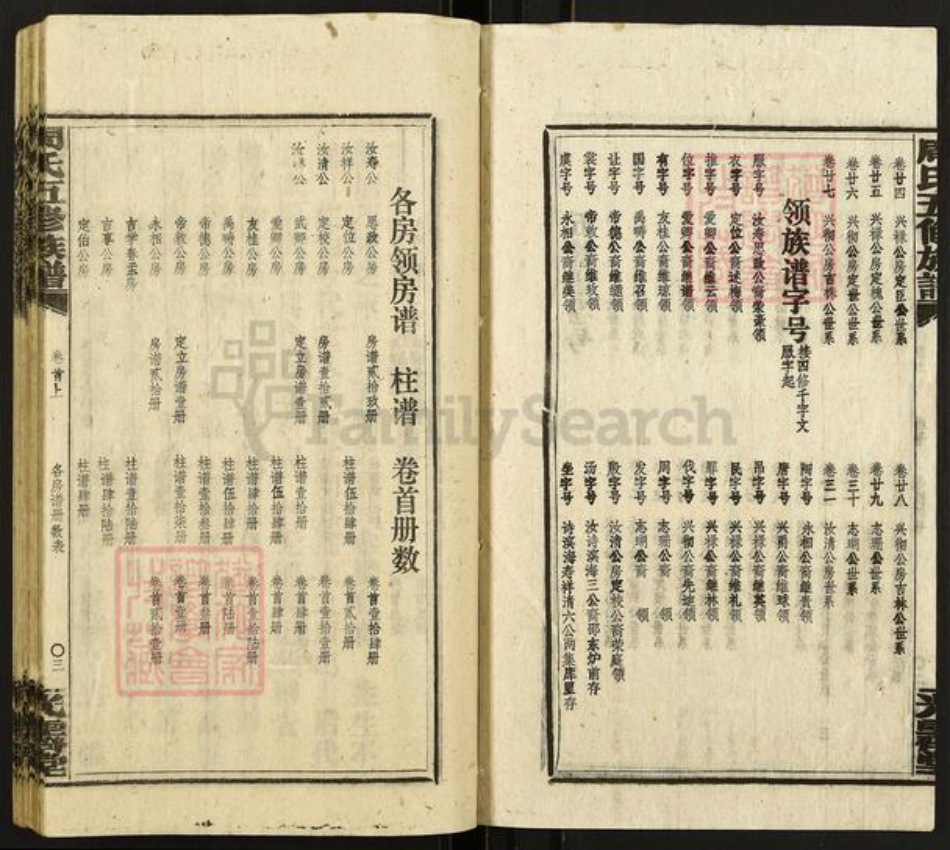 卷廿四 兴禄公房定臣公世系
卷廿五 兴禄公房定槐公世系
卷廿六 兴彻公房定世公世系
卷廿七 兴彻公房吉林公世系
领族谱字号 接四修千字文服字起
服字号 汝海思敬公裔荣豪领
衣字号 定位公裔述梅领
推字号 爱卿公裔继云领
位字号 爱卿公裔维谱领
有字号 友桂公裔维琼领
国字号 禹畴公裔维召领
让字号 帝德公裔继继领
裳字号 帝敦公裔维玖领
虞字号 永相公裔继美领
卷廿八 兴彻公房吉林公世系
卷廿九 志珊公世系
卷三十 志瑚公世系
卷三一 汝清公房世系
陶字号 永相公裔继贵领
唐字号 兴爵公裔继球领
吊字号 兴禄公裔继英领
民字号 兴禄公裔维礼领
罪字号 兴禄公裔继林领
伐字号 兴彻公裔先迪领
周字号 志珊公裔 领
发字号 志瑚公裔 领
殷字号 汝清公房定校公裔荣庭领
汤字号 汝诗滨海三公裔邵东炉前存
坐字号 诗滨海寿祥清六公两集库盟存
各房领房谱 柱谱 卷首册数
汝寿公 思敬公房 房谱贰拾玖册 卷首壹拾肆册
汝祥公 定位公房 柱谱伍拾肆册 卷首贰拾册
汝清公 定校公房 房谱壹拾贰册 卷首壹拾壹册
汝 公 武卿公房 定立房谱壹册 柱谱壹拾册 卷首肆册
爱卿公房 柱谱伍拾肆册 卷首肆册
友桂公房 柱谱肆拾册 卷首壹拾陆册
禹畴公房 柱谱伍拾肆册 卷首陆册
帝德公房 柱谱壹拾叁册 卷首 册
帝敦公房 定立房谱壹册 柱谱壹拾柒册 卷首壹册
永相公房 房谱贰拾册 卷首贰拾壹册
吉学春玉房 柱谱壹拾陆册
吉享公房 柱谱肆拾陆册
定伯公房 柱谱肆册
周氏五修族谱
卷首上
各房谱册数表
〇三
光霁堂
周氏五修族谱
光霁堂
FamilySearch